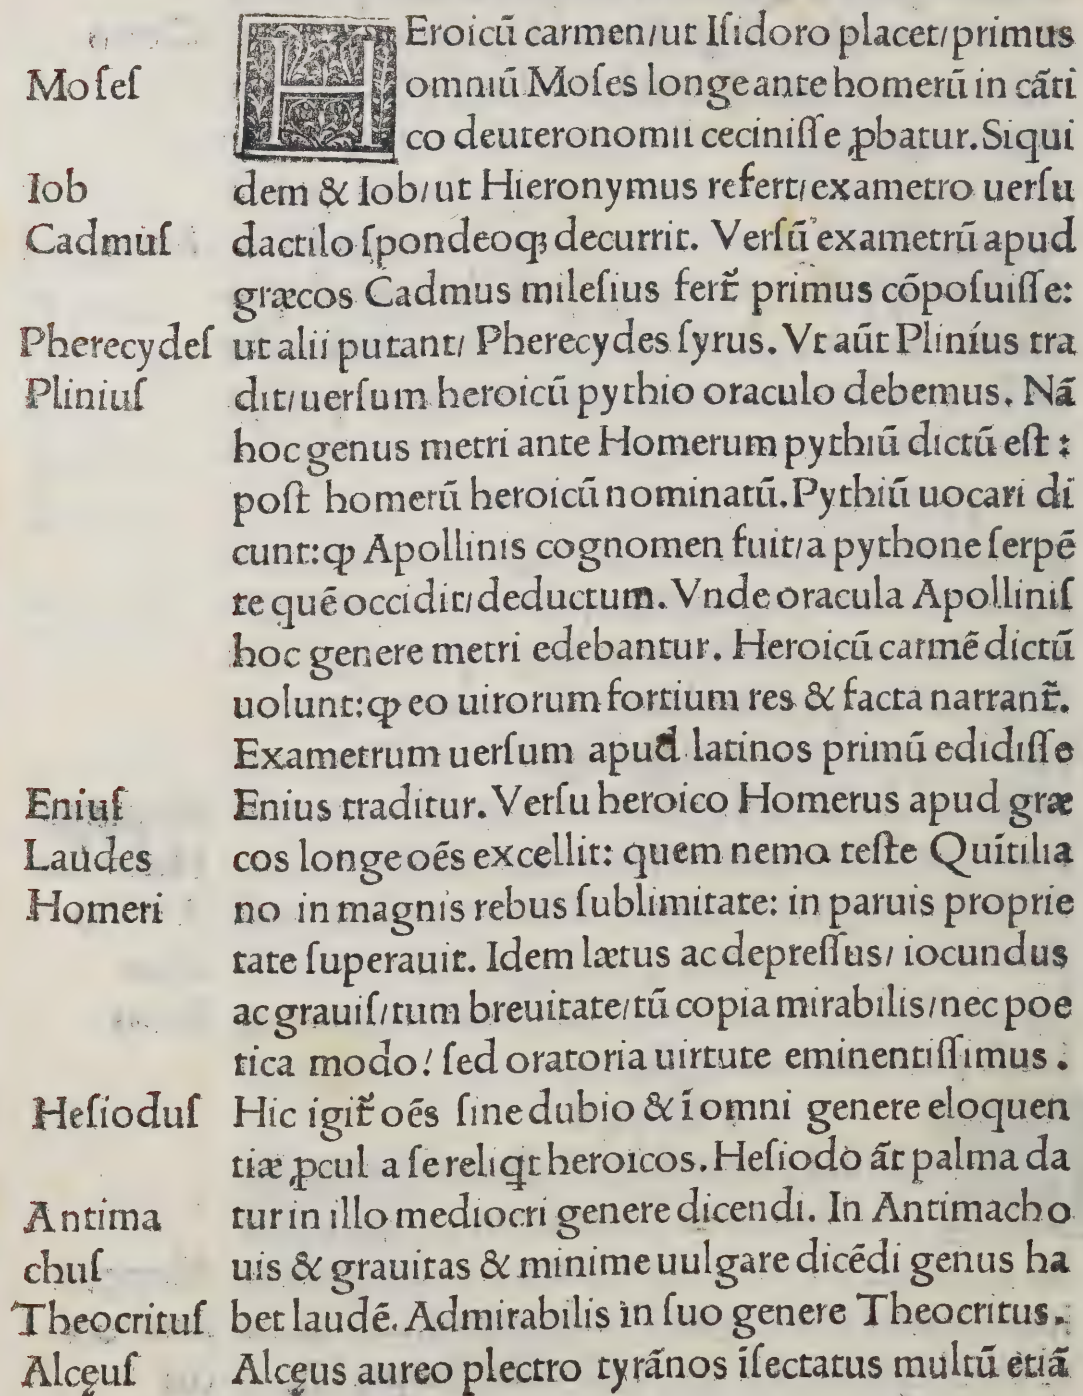 HEroicū carmen/ut Iſidoro placet/primus
Moſeſ omniū Moſes longe ante homerū in cāti
co deuteronomii ceciniſſe ꝓbatur. Siqui
Iob dem & Iob/ut Hieronymus refert/exametro uerſu
Cadmuſ dactilo ſpondeoqꝫ decurrit. Verſū exametrū apud
græcos Cadmus mileſius fert̃ primus cōpoſuiſſe:
Pherecydeſ ut alii putant/ Pherecydes ſyrus. Vt aūt Plinius tra
Pliniuſ dit/uerſum heroicū pythio oraculo debemus. Nā
hoc genus metri ante Homerum pythiū dictū eſt:
poſt homerū heroicū nominatū. Pythiū uocari di
cunt: ꝙ Apollinis cognomen fuit/a pythone ſerpē
te quē occidit/deductum. Vnde oracula Apolliniſ
hoc genere metri edebantur. Heroicū carmē dictū
uolunt: ꝙ eo uirorum fortium res & facta narrant̃.
Exametrum uerſum apud latinos primū edidiſſe
Eniuſ Enius traditur. Verſu heroico Homerus apud græ
Laudes cos longe oēs excellit: quem nemo teſte Quītilia
Homeri no in magnis rebus ſublimitate: in paruis proprie
tate ſuperauit. Idem lætus ac depreſſus/ iocundus
ac grauiſ/tum breuitate/tū copia mirabilis/nec poe
tica modo/ ſed oratoria uirtute eminentiſſimus.
Heſioduſ Hic igit̃ oēs ſine dubio & ī omni genere eloquen
tiæ ꝓcul a ſe reliqt heroicos. Heſiodo āt palma da
Antima tur in illo mediocri genere dicendi. In Antimacho
chuſ uis & grauitas & minime uulgare dicēdi genus ha
Theocrituſ bet laudē. Admirabilis in ſuo genere Theocritus.
Alcęuſ Alcęus aureo plectro tyrānos īſectatus multū etiā